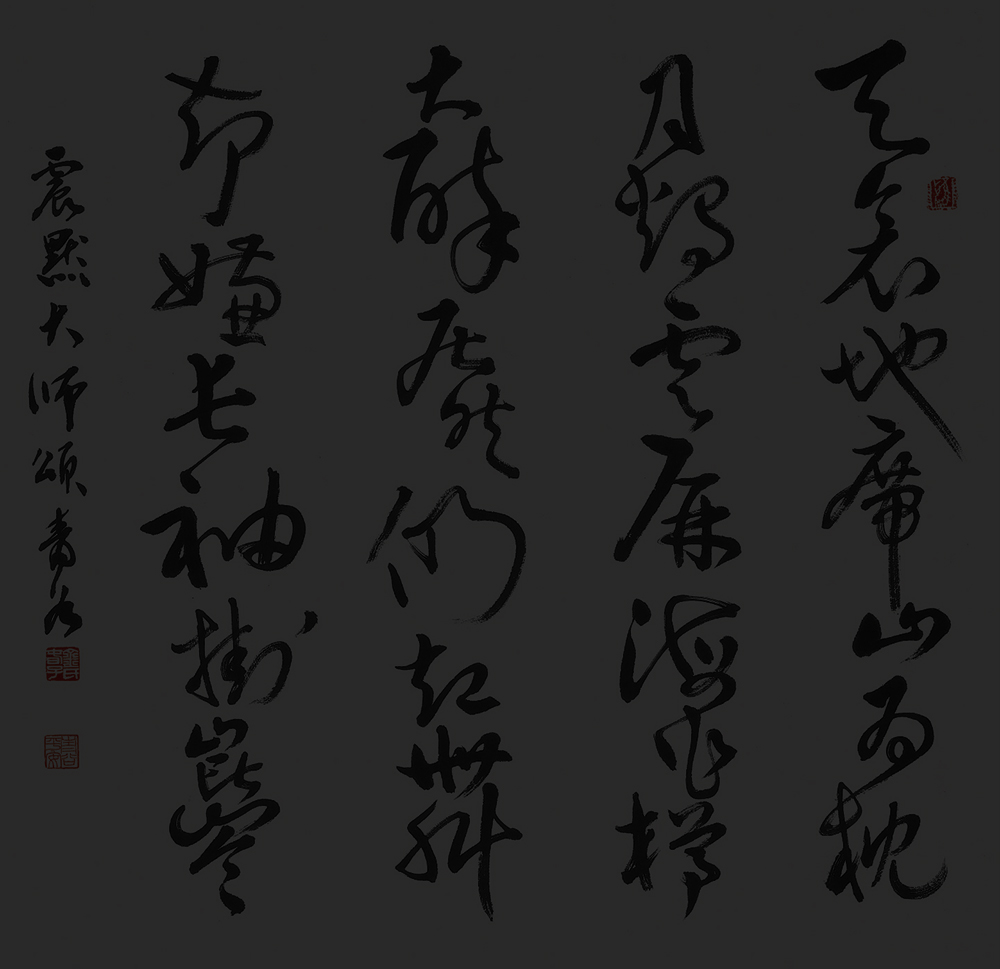 天衾地席山爲枕
月燭雲屛海作樽
大醉居然仍起舞
却嫌長袖掛崑崙
震黙大師頌